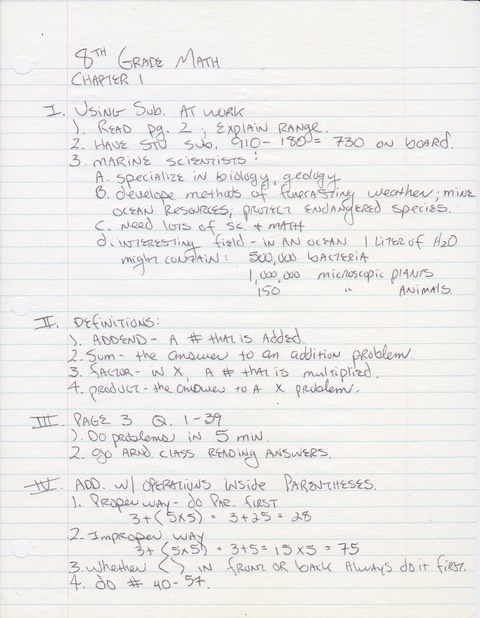 8TH GRADE MATH
CHAPTER 1
I. USING SUB. AT WORK
1. READ pg. 2; EXPLAIN RANGE.
2. HAVE STU SUB. 910-180 = 730 ON BOARD.
3. MARINE SCIENTISTS:
A. specialize in biology, geology
B. develope methods of forecasting weather; mine
OCEAN RESOURCES; PROTECT ENDANGERED SPECIES.
C. NEED LOTS OF SC. & MATH
d. INTERESTING field - IN AN OCEAN 1 LITER OF H2O
might CONTAIN: 500,000 BACTERIA
1,000,000 microscopic PLANTS
150 " ANIMALS.
II. DEFINITIONS:
1. ADDEND - A # that is Added.
2. Sum - the answer to an addition problem.
3. FACTOR - IN X, A # that is multiplied.
4. product - the answer to A X problem.
III. PAGE 3 Q. 1-39
1. Do problems in 5 min.
2. go ARND CLASS READING ANSWERS.
IV. ADD. W/ OPERATIONS INSIDE PARENTHESES.
1. Proper way - do PAR. FIRST
3+(5x5) = 3+25 = 28
2. Improper way
3+(5x5) = 3+5= 15x5 = 75
3. Whether ( ) in front or back Always do it first.
4. do # 40-54.